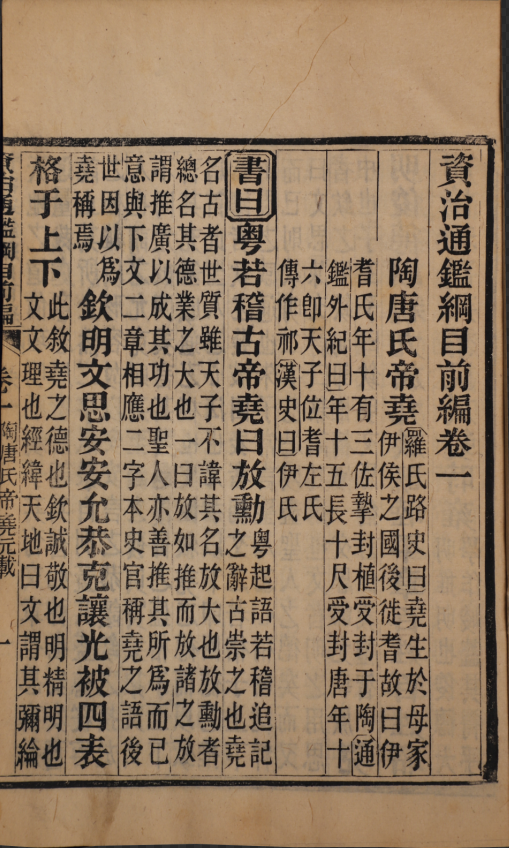 資治通鑑綱目前編卷一
陶唐氏帝堯
羅氏路史曰堯生於母家
伊侯之國後徙耆故曰伊
耆氏年十有三佐摯封植受封于陶通
鑑外紀曰年十五長十尺受封唐年十
六卽天子位耆左氏
傳作祁漢史曰伊氏
書曰粤若稽古帝堯曰放勳
粤起語若稽追記
之辭古崇之也堯
名古者世質雖天子不諱其名放大也放勳者
總名其德業之大也一曰放如推而放諸之放
謂推廣以成其功也聖人亦善推其所爲而已
意與下文二章相應二字本史官稱堯之語後
世因以爲
堯稱焉
欽明文思安安允恭克讓光被四表
格于上下
此敘堯之德也欽誠敬也明精明也
文文理也經緯天地曰文謂其彌綸
資治通鑑綱目前編 卷一 陶唐氏帝堯元載 一